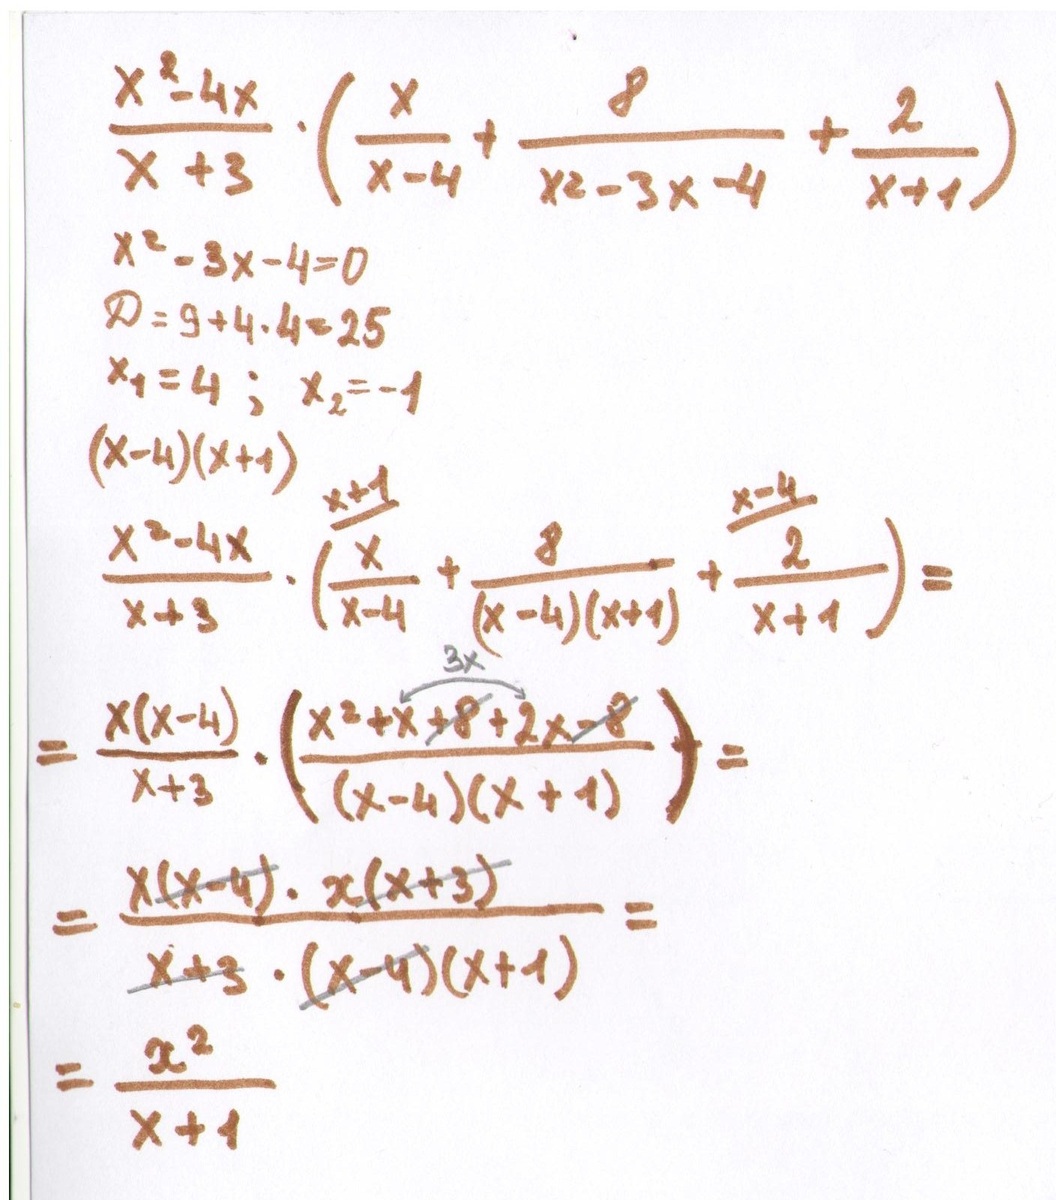 x²-4x / x+3 · ( x / x-4 + 8 / x2-3x-4 + 2 / x+1 )
x²-3x-4=0
D=9+4·4=25
x₁=4; x₂=-1
(x-4)(x+1)
x+1 x-4
x²-4x / x+3 · ( x / x-4 + 8 / (x-4)(x+1) + 2 / x+1 ) =
3x
= x(x-4) / x+3 · ( x²+x+8+2x-8 / (x-4)(x+1) ) =
= x(x-4) · x(x+3) / x+3 · (x-4)(x+1) =
= x² / x+1